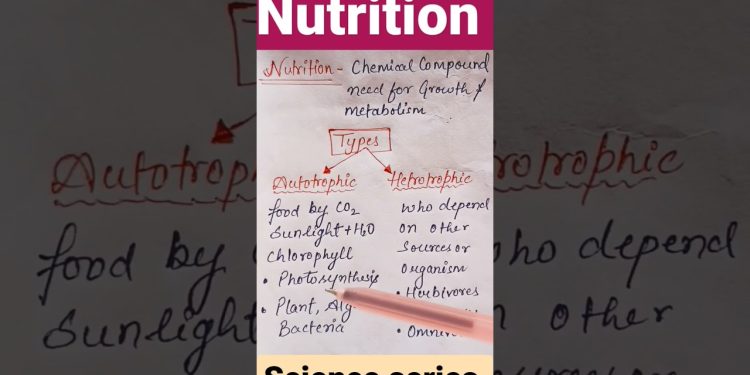 Nutrition
Nutrition - Chemical Compound
need for Growth &
metabolism
Types
Autotrophic
food by CO2
Sunlight + H2O
Chlorophyll
• Photosynthesis
• Plant,
Bacteria
Hetrotrophic
Who depend
on other
Sources or
Organism
• Herbivores
Science series